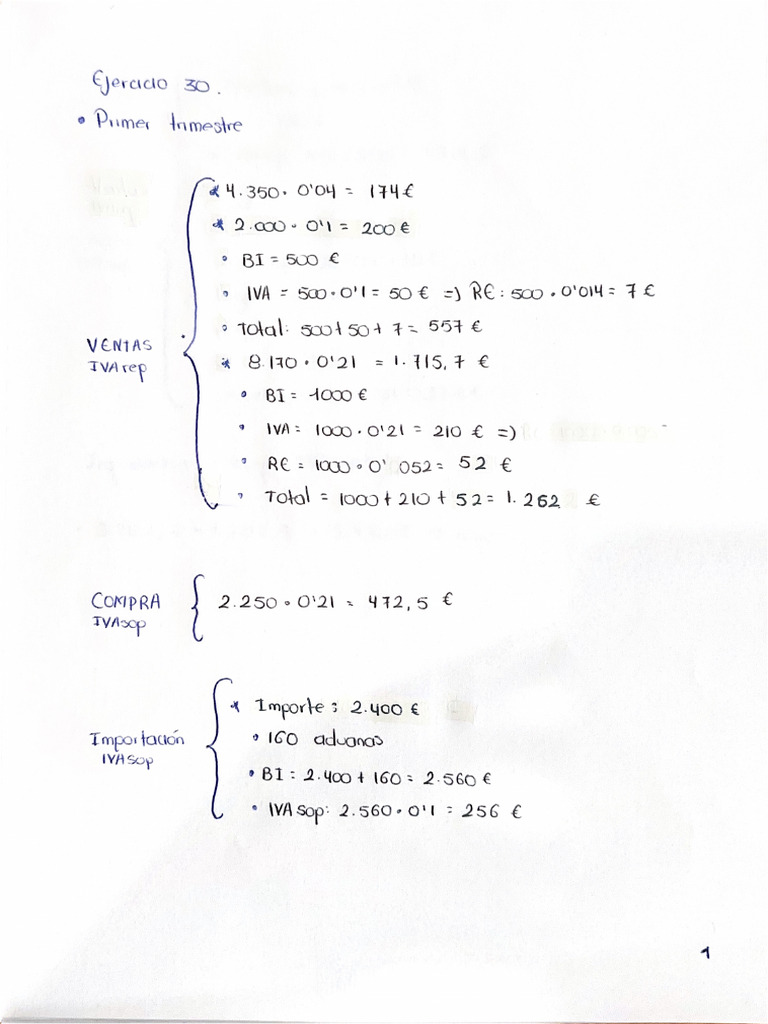 Ejercicio 30.
• Primer trimestre
* 4.350 · 0'04 = 174 €
* 2.000 · 0'1 = 200 €
• BI = 500 €
• IVA = 500 · 0'1 = 50 € => RE: 500 · 0'014 = 7 €
• Total: 500 + 50 + 7 = 557 €
VENTAS
IVA rep
* 8.170 · 0'21 = 1.715,7 €
• BI = 1000 €
• IVA = 1000 · 0'21 = 210 € =>
• RE = 1000 · 0'052 = 52 €
• Total = 1000 + 210 + 52 = 1.262 €
COMPRA
IVA sop
2.250 · 0'21 = 472,5 €
Importación
IVA sop
* Importe: 2.400 €
• 160 aduanas
• BI: 2.400 + 160 = 2.560 €
• IVA sop: 2.560 · 0'1 = 256 €
1